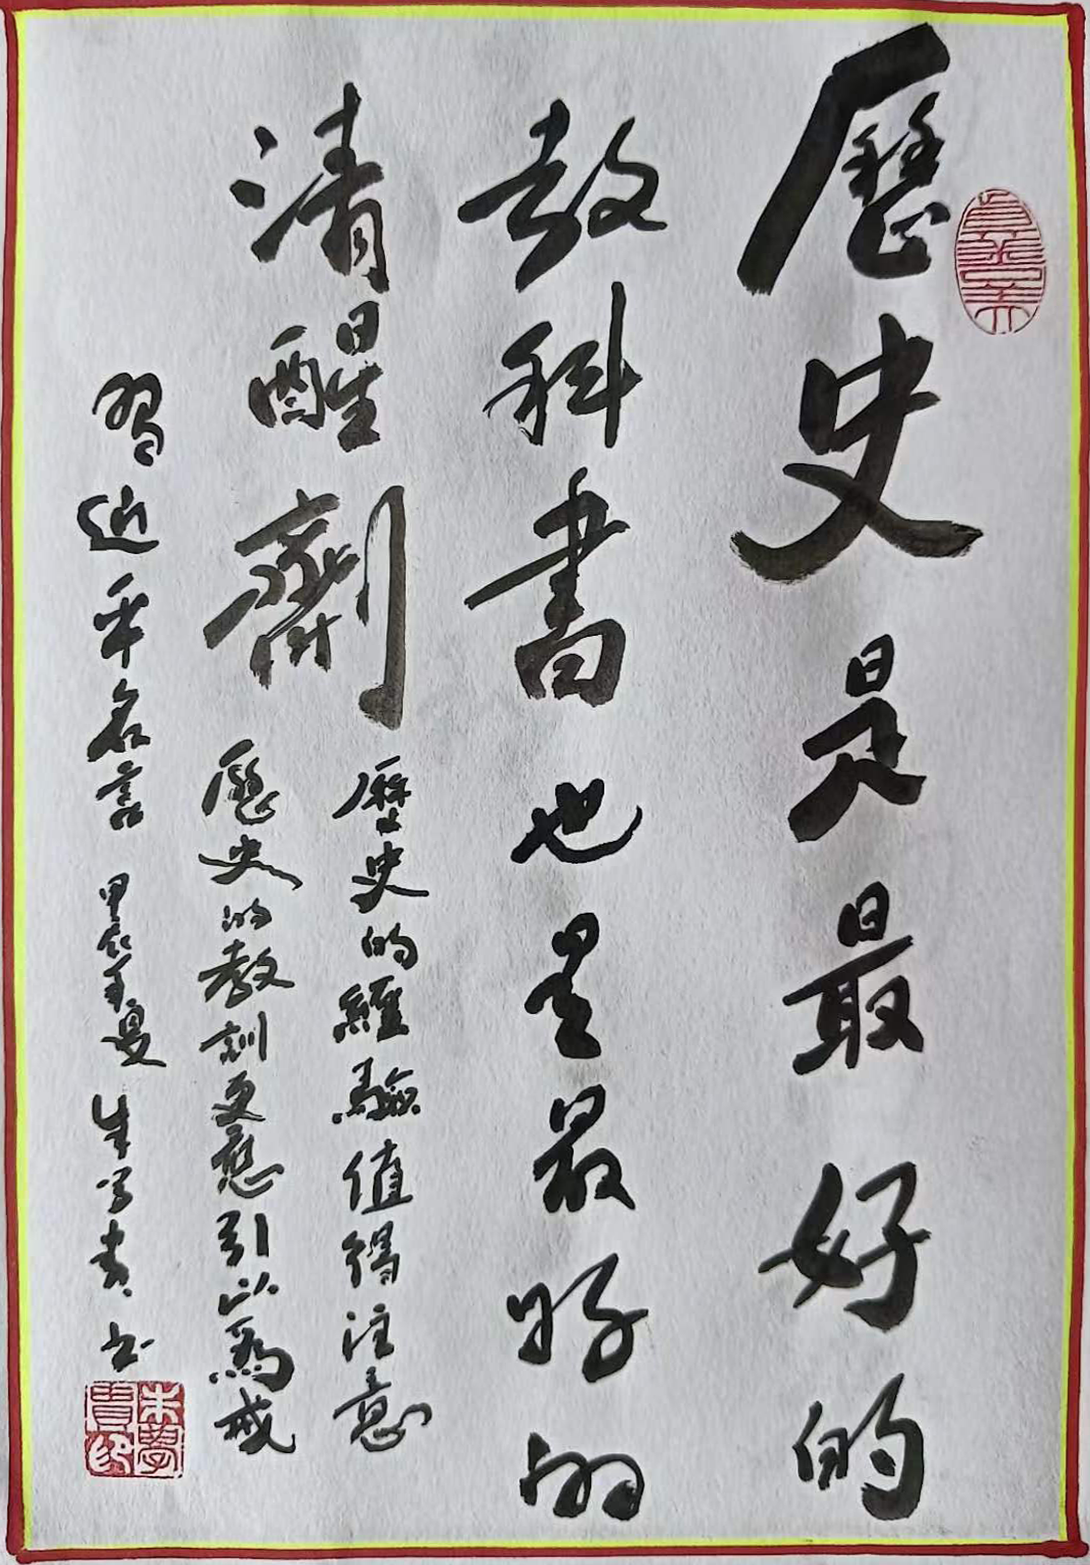 歷史是最好的
教科書也是最好的
清醒劑
歷史的經驗值得注意
歷史的教訓更應引以爲戒
習近平名言 甲辰年夏 朱学貴書
朱學貴印